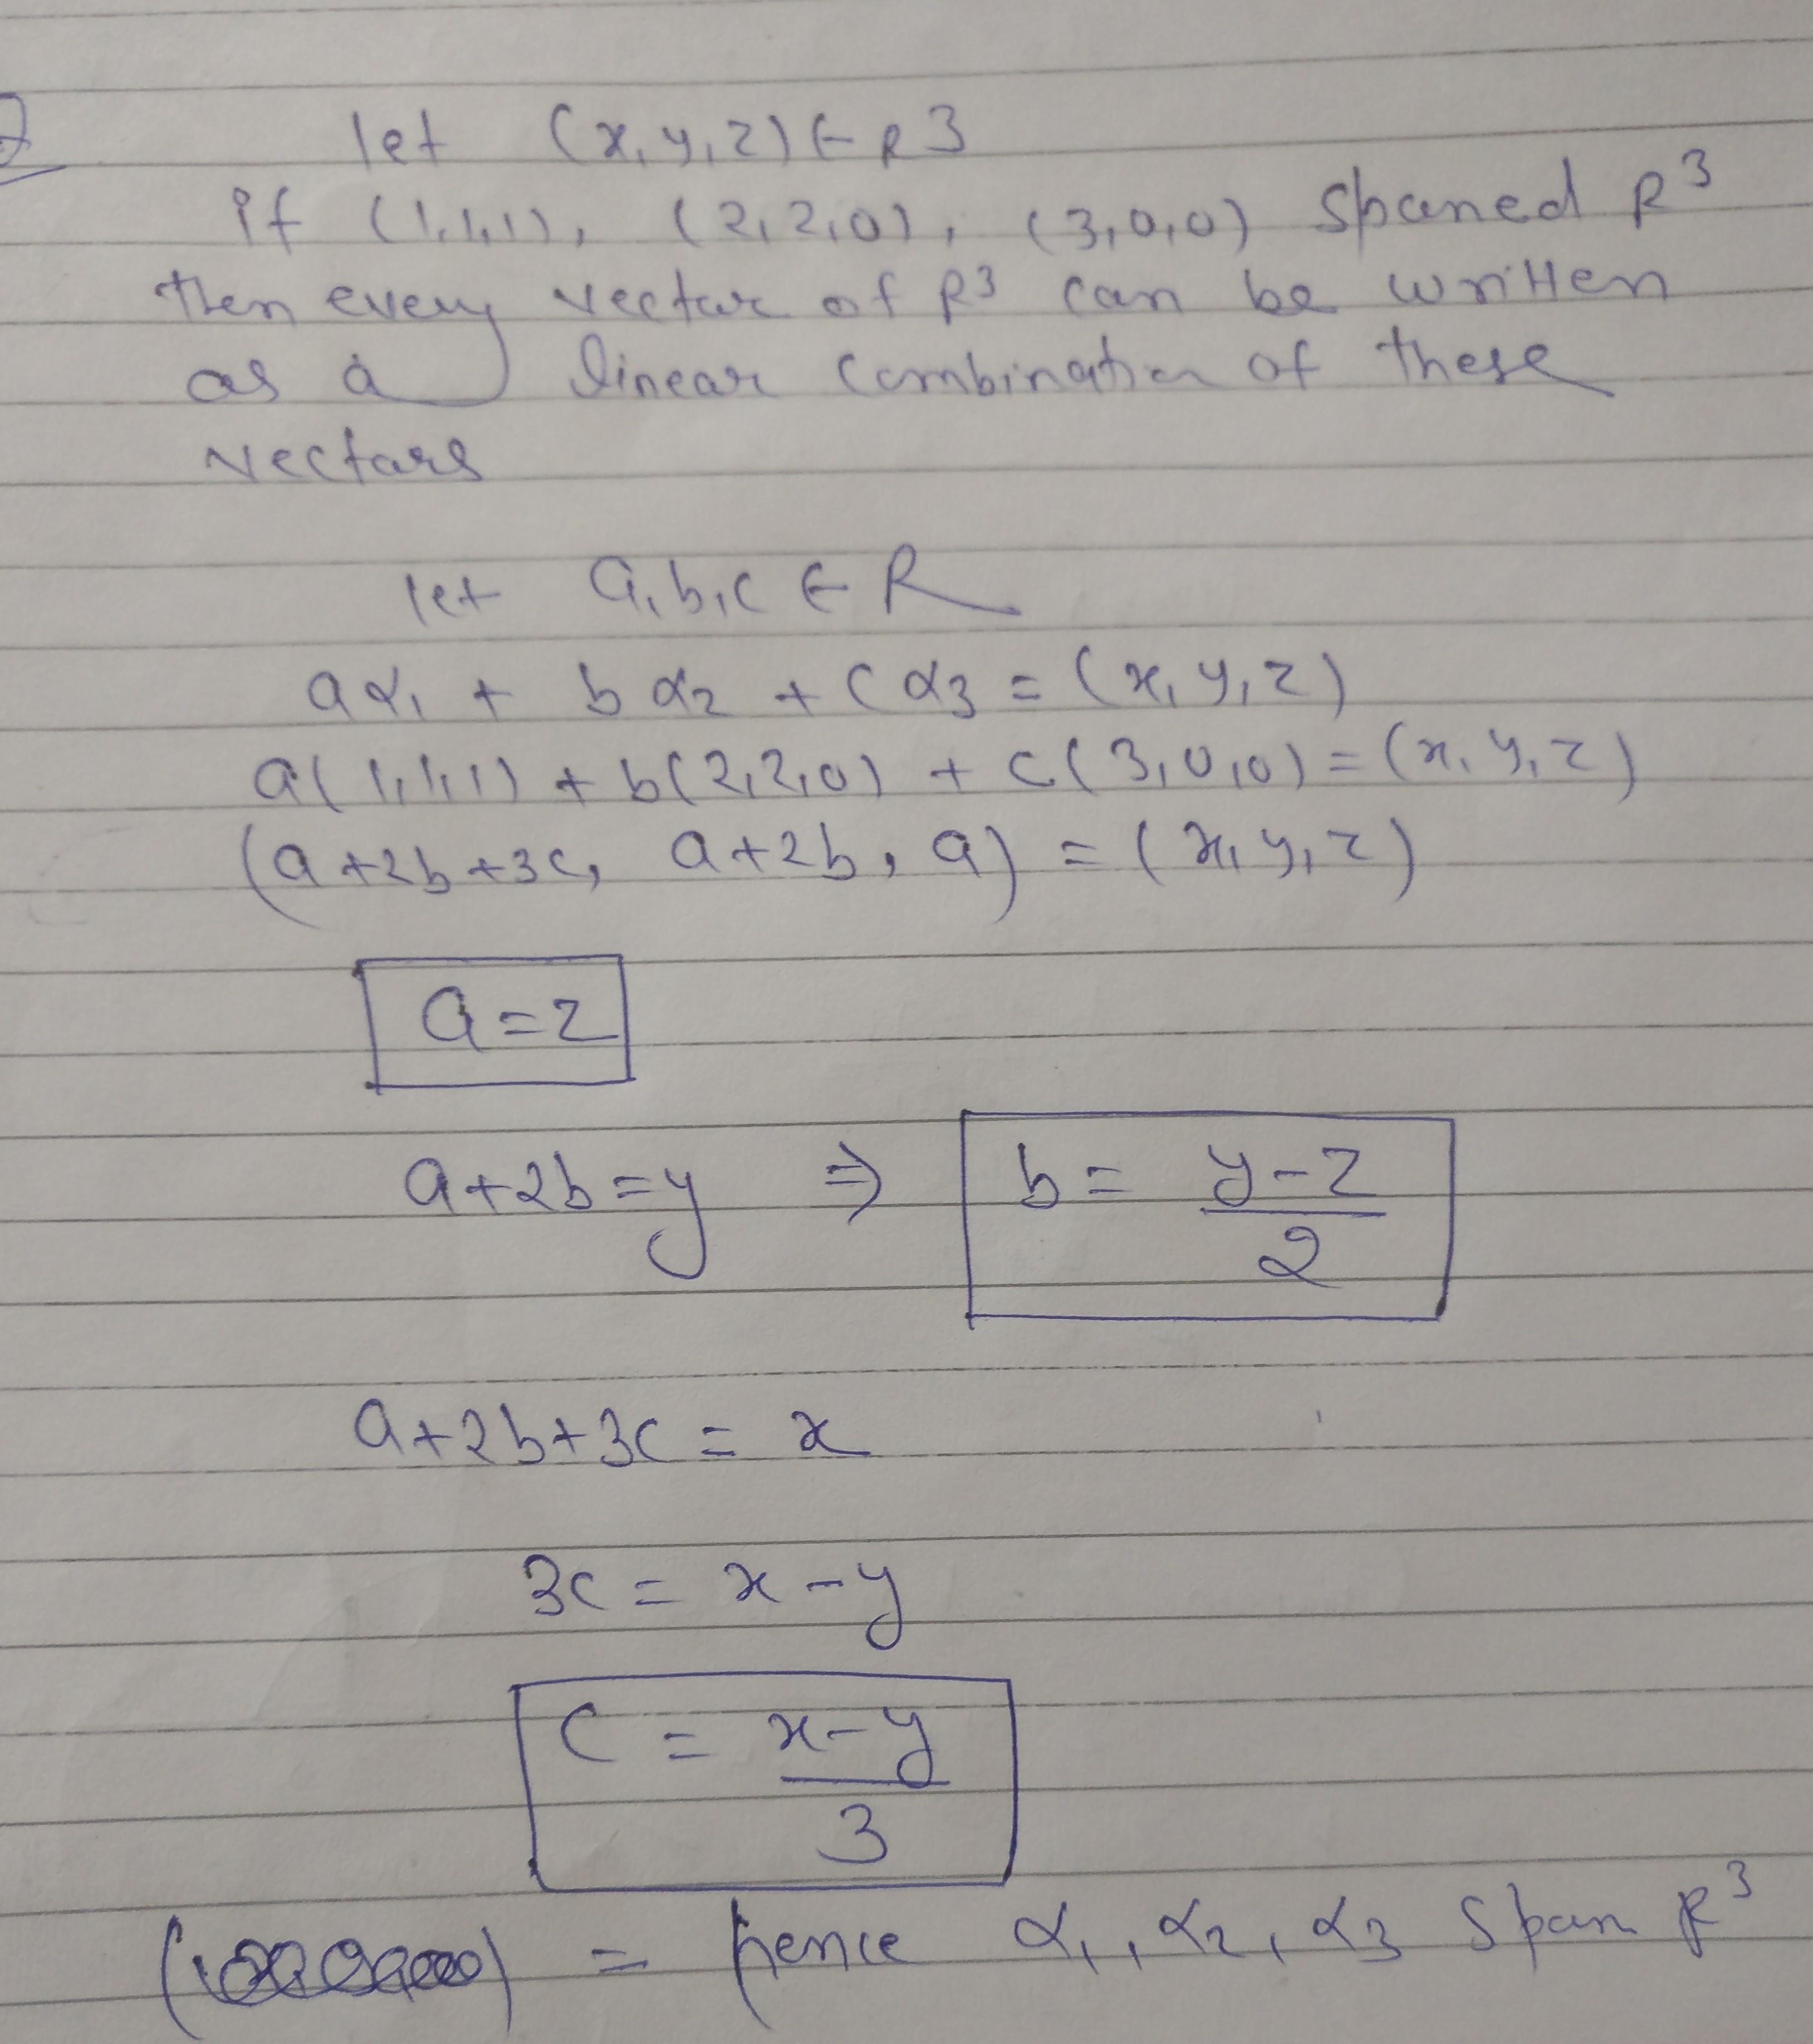 let (x, y, z) ∈ R3
if (1,1,1), (2,2,0), (3,0,0) spaned R³
then every vector of R³ can be written
as a linear combination of these
vectors
let a, b, c ∈ R
aα₁ + bα₂ + cα₃ = (x, y, z)
a(1,1,1) + b(2,2,0) + c(3,0,0) = (x, y, z)
(a+2b+3c, a+2b, a) = (x, y, z)
a = z
a+2b=y ⇒ b = (y-z)/2
a+2b+3c = x
3c = x-y
c = (x-y)/3
= hence α₁, α₂, α₃ span R³